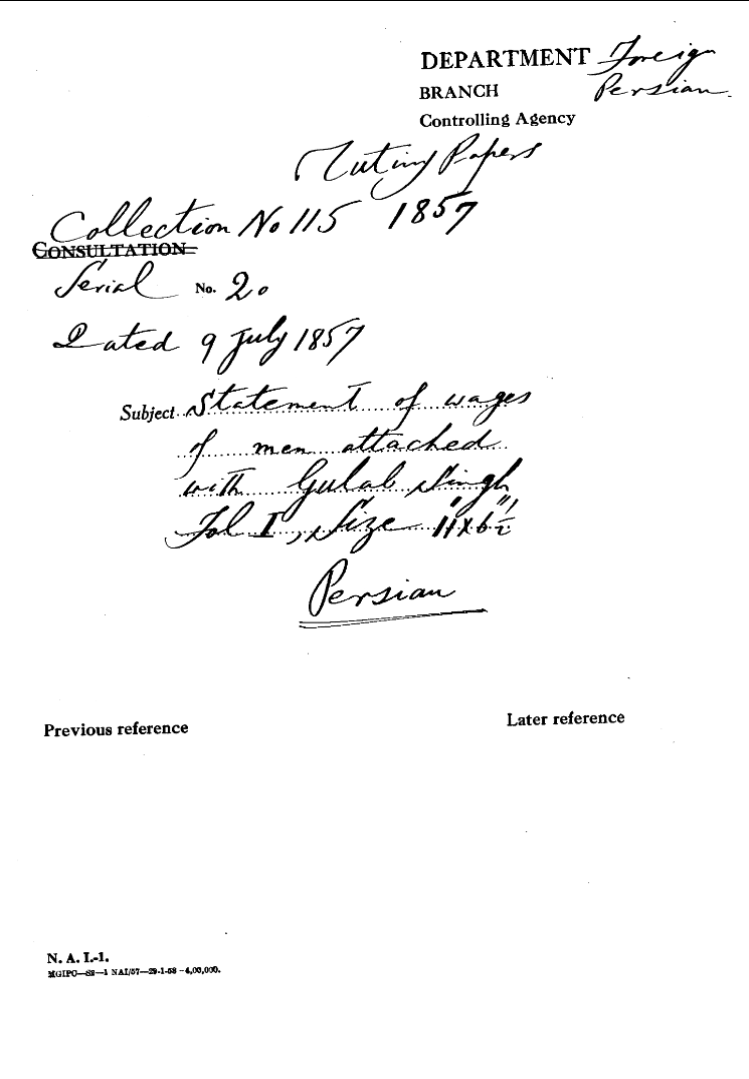 DEPARTMENT Foreign
BRANCH Persian.
Controlling Agency
Mutiny Papers
Collection No 115 1857
CONSULTATION
Serial No. 20
Dated 9 July 1857
Subject Statement of wages
of men attached
with Gulab Singh
Fol I, Size 11"x6½"
Persian
Previous reference
Later reference
N. A. I.-1.
MGIPC—S2—1 NAI/57—29-1-58—4,00,000.